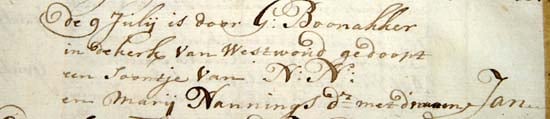 de 9 Julij is door G: Boonakker
in de kerk van Westwoud gedoopt
een Soontje van N: N:
en Marij Nannings dr. met d naem Jan